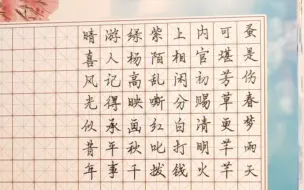 蚤是伤春梦雨天
可堪芳草更芊芊
内官初赐清明火
上相闲分白打钱
紫陌乱嘶红叱拨
绿杨高映画秋千
游人记得承平事
暗喜风光似昔年